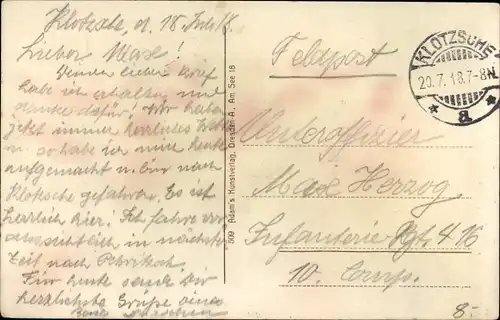 Klotzsche, d. 18. Juli 18.
Lieber Max!
Deinen lieben Brief
habe ich erhalten und
danke dafür! Wir haben
jetzt immer herrliches
u. so habe ich mich heute
aufgemacht u. bin nach
Klotzsche gefahren. Es ist
herrlich hier! Ich fahre
in nächster
Zeit nach
Für heute sende dir
herzlichste Grüße
509 Adam's Kunstverlag, Dresden-A., Am See 16
Feldpost
KLOTZSCHE
20.7.18.7-8N.
* a *
Unteroffizier
Max Herzog
Infanterie Rgt. 416
10. Comp.
8.-